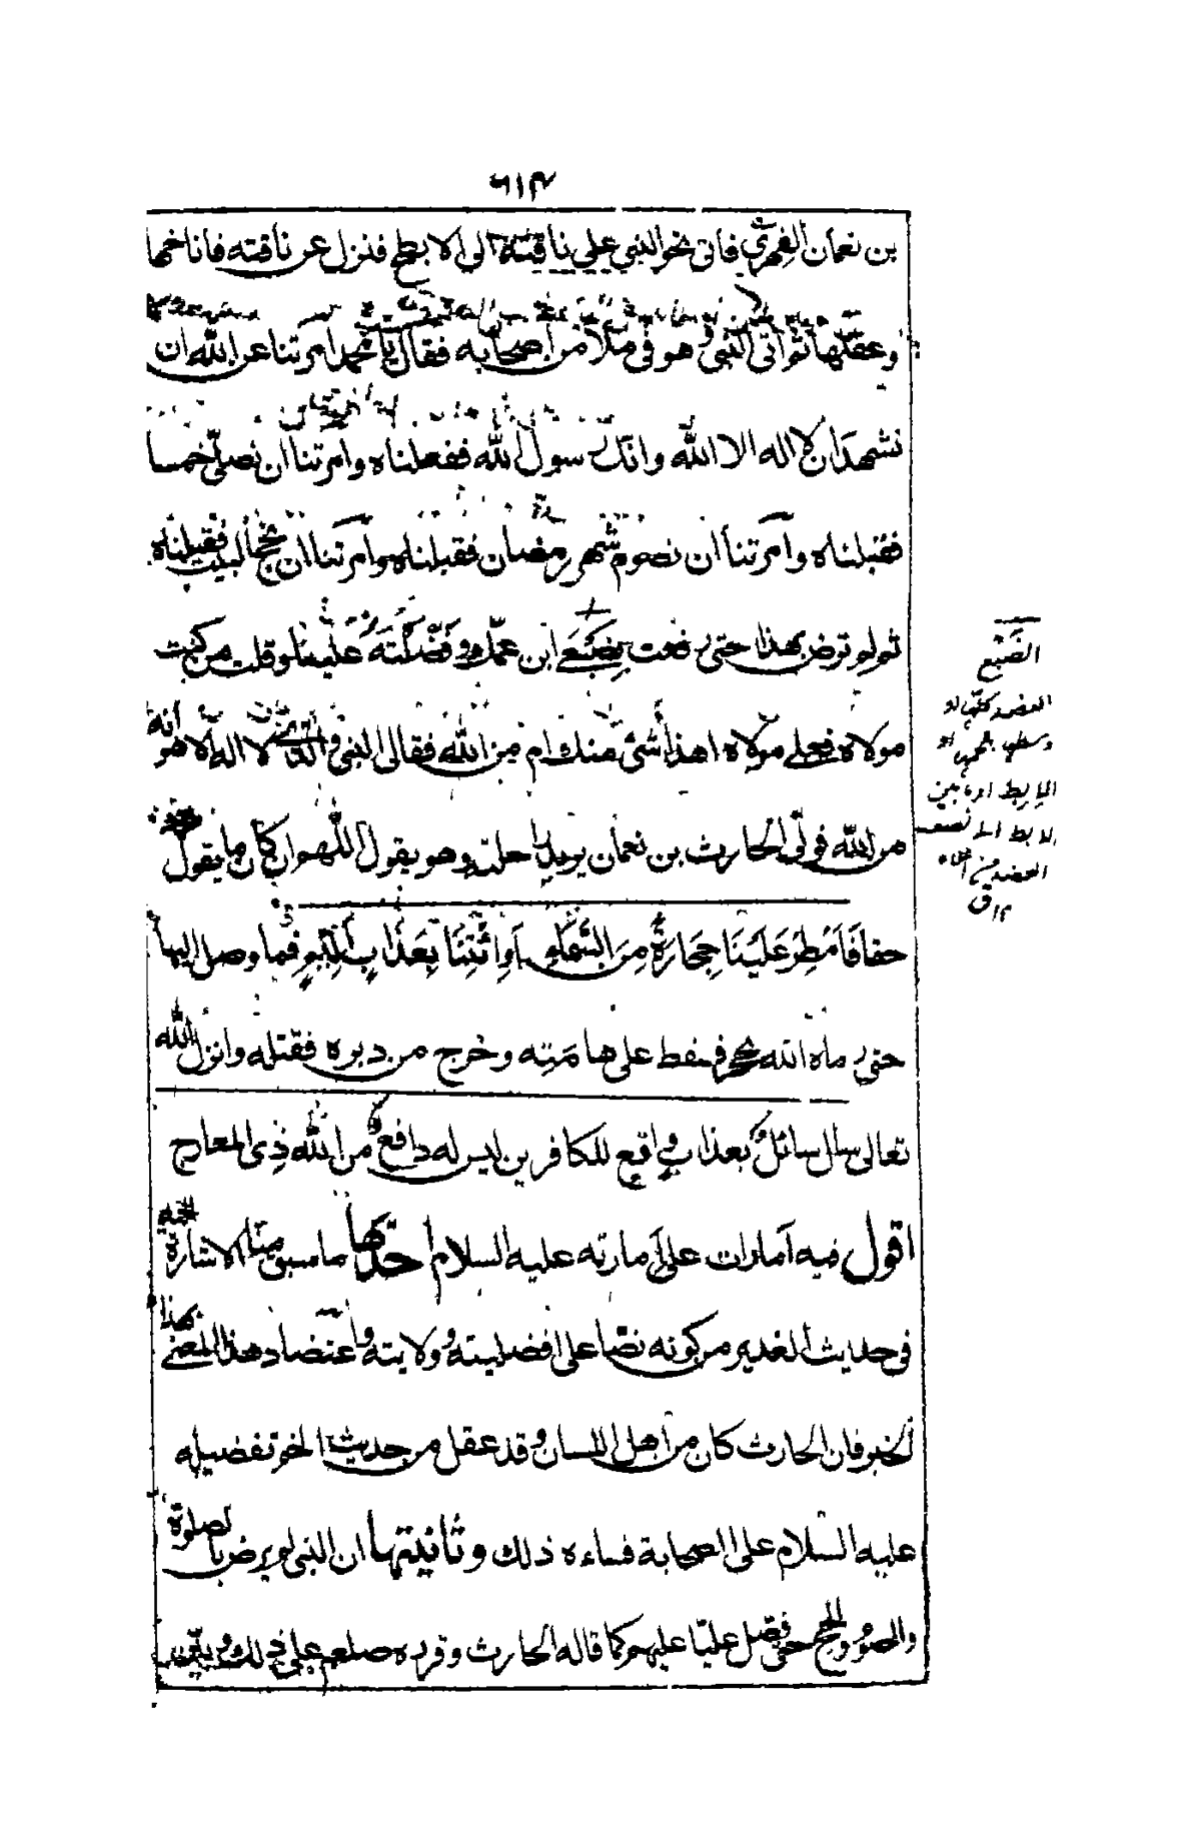 ٦١٣
بن نعمان الفهري فاتى نحو النبي على ناقته الى الابطح فنزل عن ناقته فاناخها
وعقلها ثم اتى النبي وهو في ملأ من اصحابه فقال يا محمد امرتنا عن الله ان
نشهد ان لا اله الا الله وانك رسول الله ففعلناه وامرتنا ان نصلي خمسا
فقبلناه وأمرتنا أن نصوم شهر رمضان فقبلناه وأمرتنا ان نحج البيت فقبلناه
ثم لم ترض بهذا حتى رفعت بضبعَي ابن عمك وفَضَّلْتَهُ عَلَيْنا وقلت من كنت
مولاه فعلي مولاه اهذا شئ منك ام من الله فقال النبي والذي لا اله الا هو انه
من الله فولّى الحارث بن نعمان يريد راحلته وهو يقول اللهم ان كان ما يقول
حقا فَاَمْطِرْ عَلَيْنَا حِجَارَةً مِنَ السَّمَاءِ اَوِ ائْتِنَا بِعَذَابٍ اَلِيْمٍ فما وصل اليها
حتى رماه الله بحجر فسقط على هامَتِه وخرج من دبره فقتله وانزل الله
تعالى سأل سائل بعذاب واقع للكافرين ليس له دافع من الله ذى المعارج
اقول فيه أمارات على أمارته عليه السلام احدها ما سبق منا الاشارة اليه
في حديث الغدير من كونه نصّا على افضليته وولايته واعتضاد هذا المعنى بهذا
الخبر فان الحارث كان من اهل اللسان وقد عقل من حديث الخم تفضيله
عليه السلام على الصحابة فساءه ذلك وثانيتها ان النبي لم يرض بالصلوة
والصوم والحج حتى فضل عليّا عليهم كما قاله الحارث وقرره صلعم على ذلك
الضَبْع
العضد كلها او
وسطها بلحمها او
الابط او ما بين
الابط الى نصف
العضد من اعلاه
١٢ ق